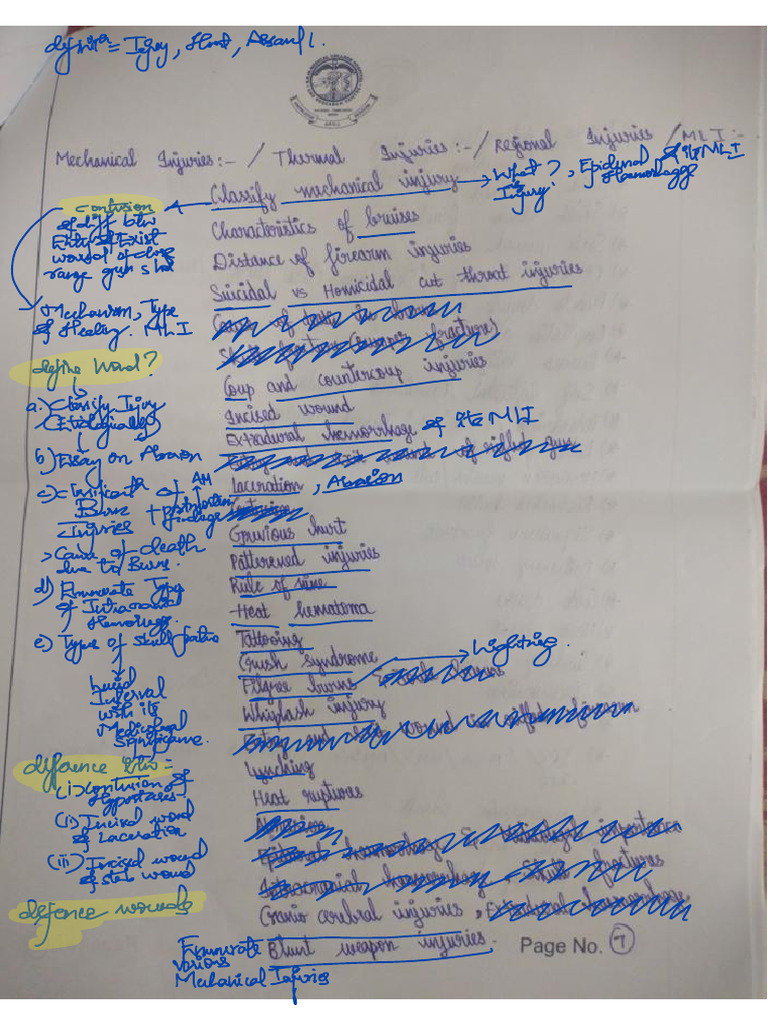 definⁿ = Injury, Hurt, Assault.
Mechanical Injuries:- / Thermal Injuries:- / Regional Injuries / MLI:-
Classify mechanical injury → What is Injury?, Epidural Haemorrhage & its MLI
Contusion
& diff btw
Entry & Exist
wound of close
range gun shot
Mechanism, Type
& Healing. MLI
Characteristics of bruises
Distance of firearm injuries
Suicidal vs Homicidal cut throat injuries
define Wound?
a.) Classify Injury
(Etiologically)
b) Essay on Abrasion
c) Classificatn of AM
Burn + postmortem
Injuries findings
> Cause of death
due to Burn.
d) Enumerate Type
of Intracranial
Hemorrhage.
e) Type of Skull fracture
Lucid
Interval
with its
Medicolegal
Significance.
Coup and countercoup injuries
Incised wound
Extradural hemorrhage & its MLI
laceration, Abrasion
Grevious hurt
Patterened injuries
Rule of nine
Heat hematoma
Tattooing
Crush syndrome
Filgree burns → Lightning.
Whiplash injury
Lynching
Heat ruptures
difference btw =
(i) Contusion &
Hypostasis
(ii) Incised wound
& Laceration
(iii) Incised wound
& stab wound
defence wounds
Cranio cerebral injuries,
Enumerate
various
Mechanical Injuries
Blunt weapon injuries.
Page No. 7